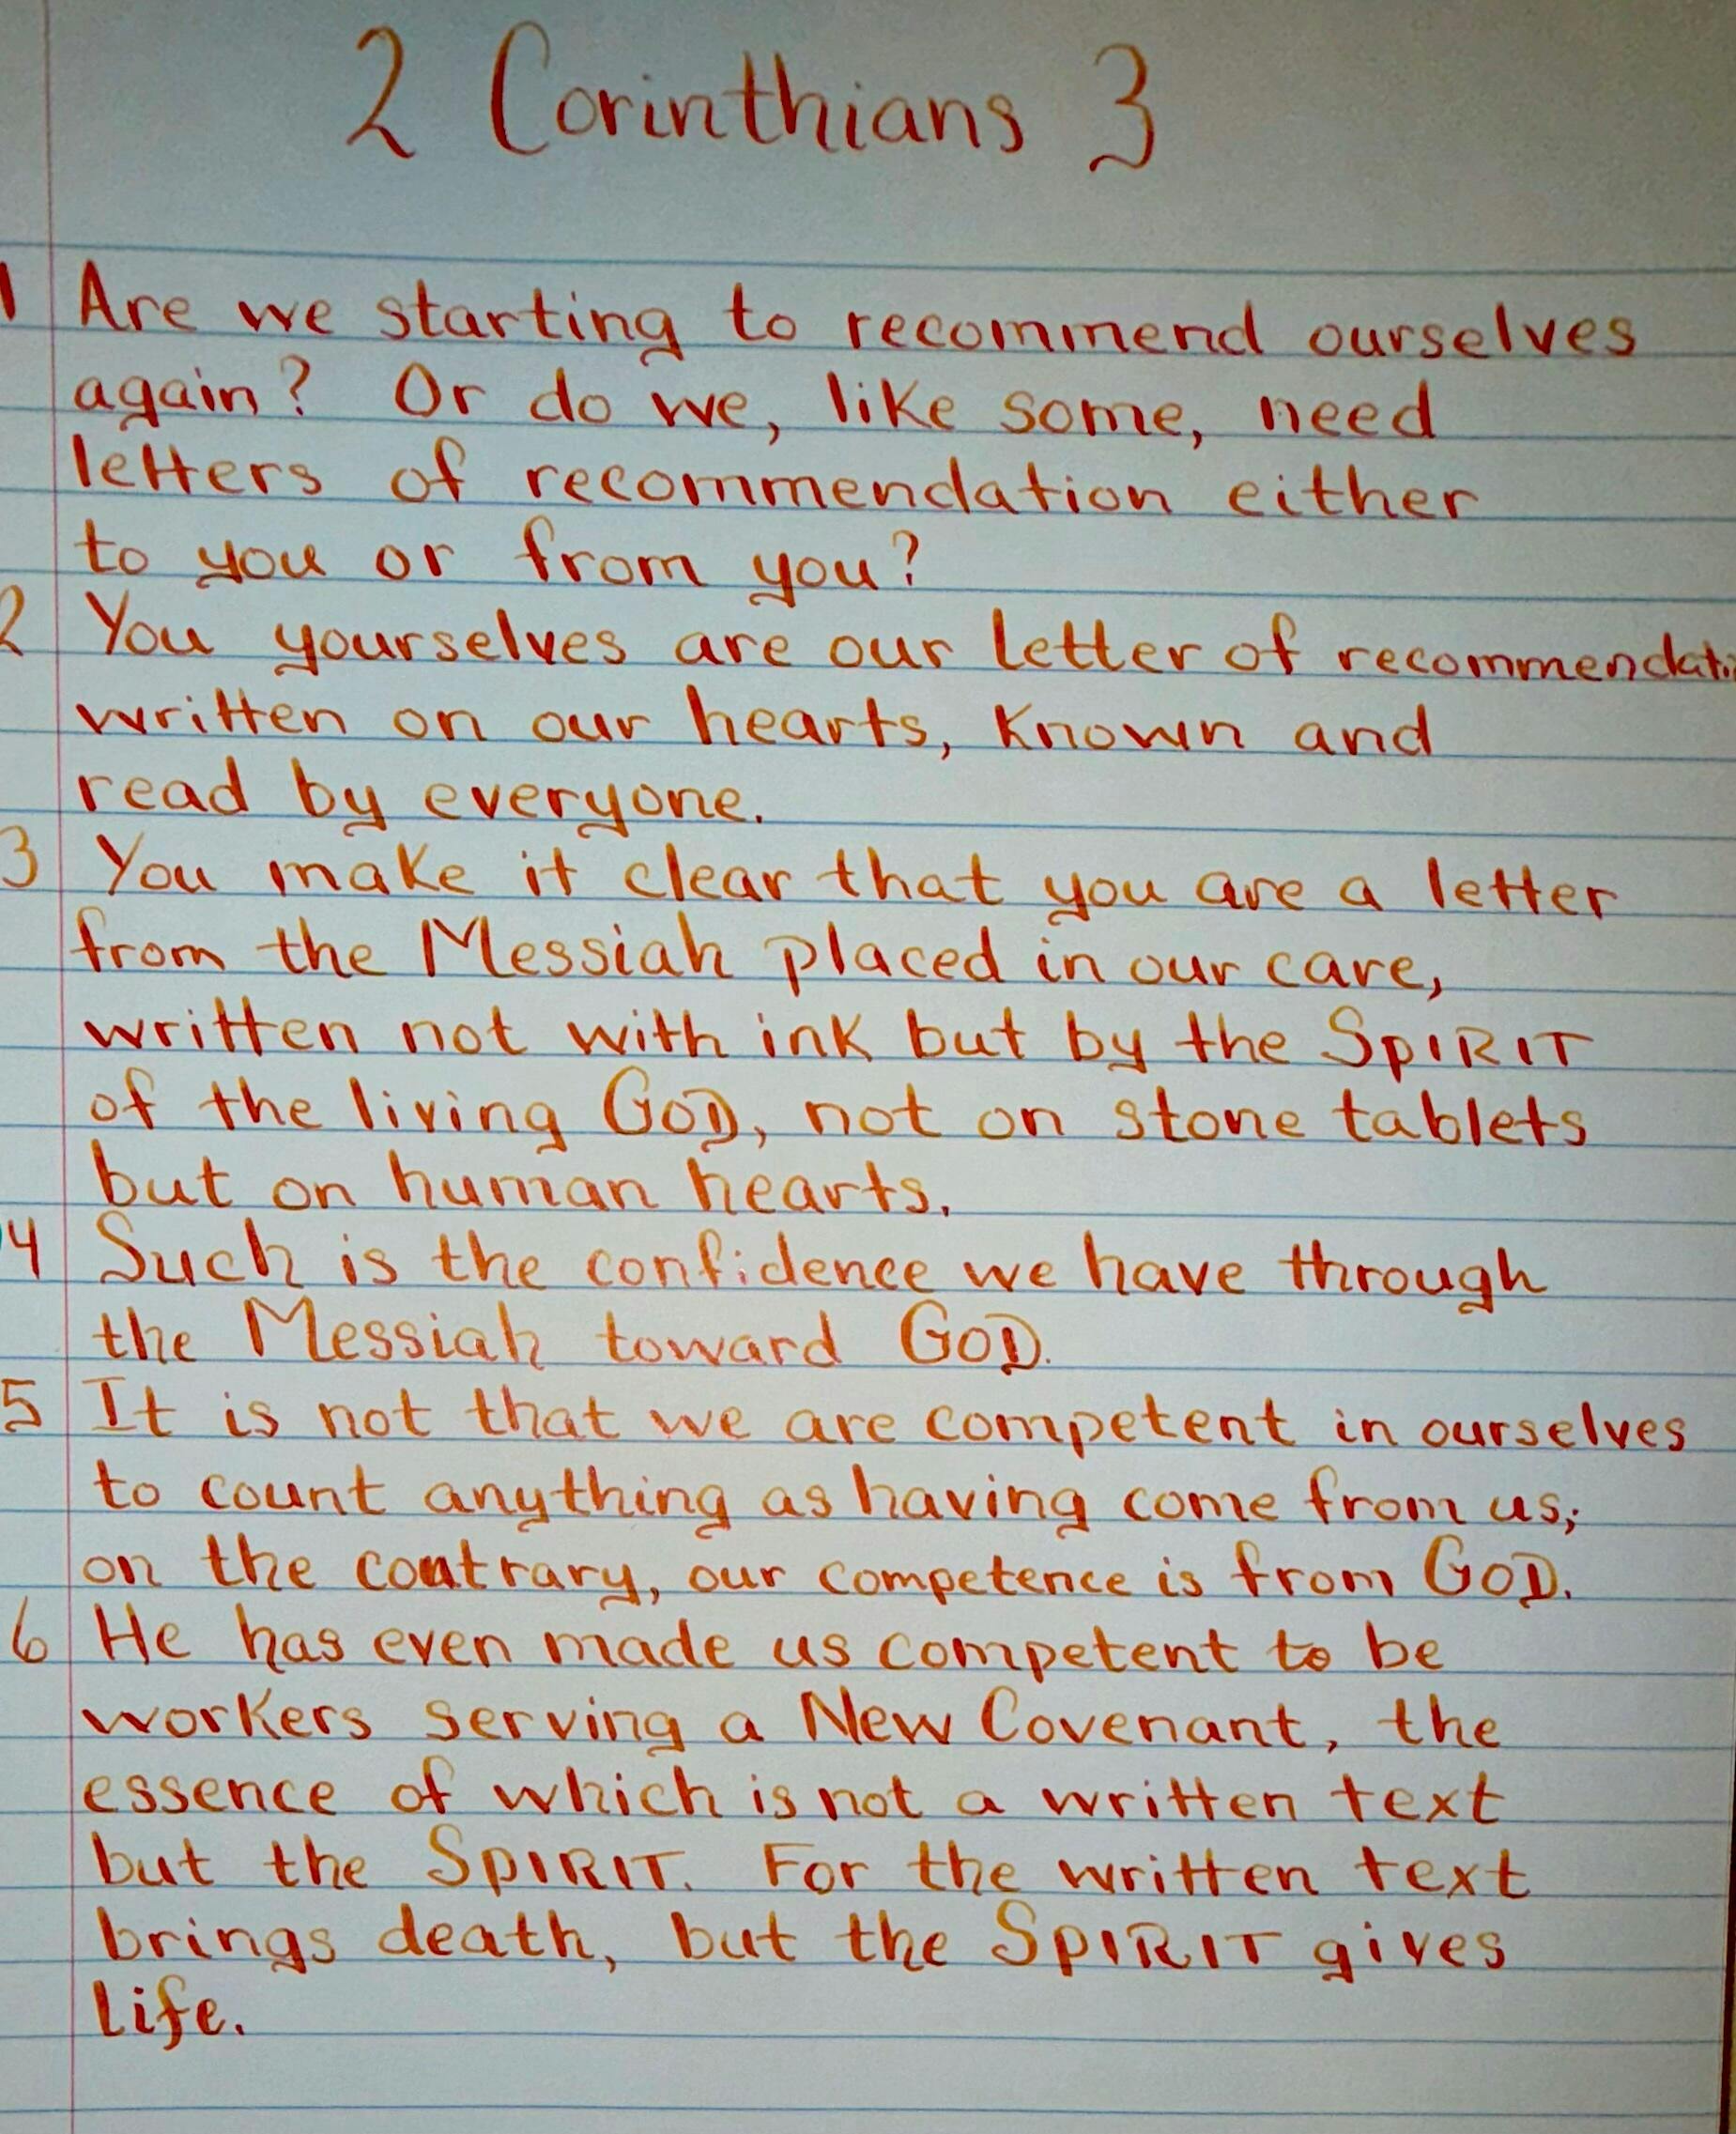 2 Corinthians 3
1 Are we starting to recommend ourselves
again? Or do we, like some, need
letters of recommendation either
to you or from you?
2 You yourselves are our letter of recommendati
written on our hearts, known and
read by everyone.
3 You make it clear that you are a letter
from the Messiah placed in our care,
written not with ink but by the SPIRIT
of the living GOD, not on stone tablets
but on human hearts.
4 Such is the confidence we have through
the Messiah toward GOD.
5 It is not that we are competent in ourselves
to count anything as having come from us;
on the contrary, our competence is from GOD.
6 He has even made us competent to be
workers serving a New Covenant, the
essence of which is not a written text
but the SPIRIT. For the written text
brings death, but the SPIRIT gives
Life.